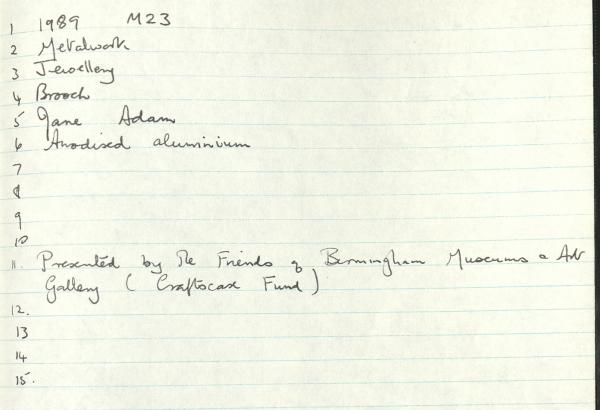 1 1989 M23
2 Metalwork
3 Jewellery
4 Brooch
5 Jane Adam
6 Anodised aluminium
7
8
9
10
11. Presented by the Friends of Birmingham Museums & Art
Gallery ( Craftscase Fund )
12.
13
14
15.